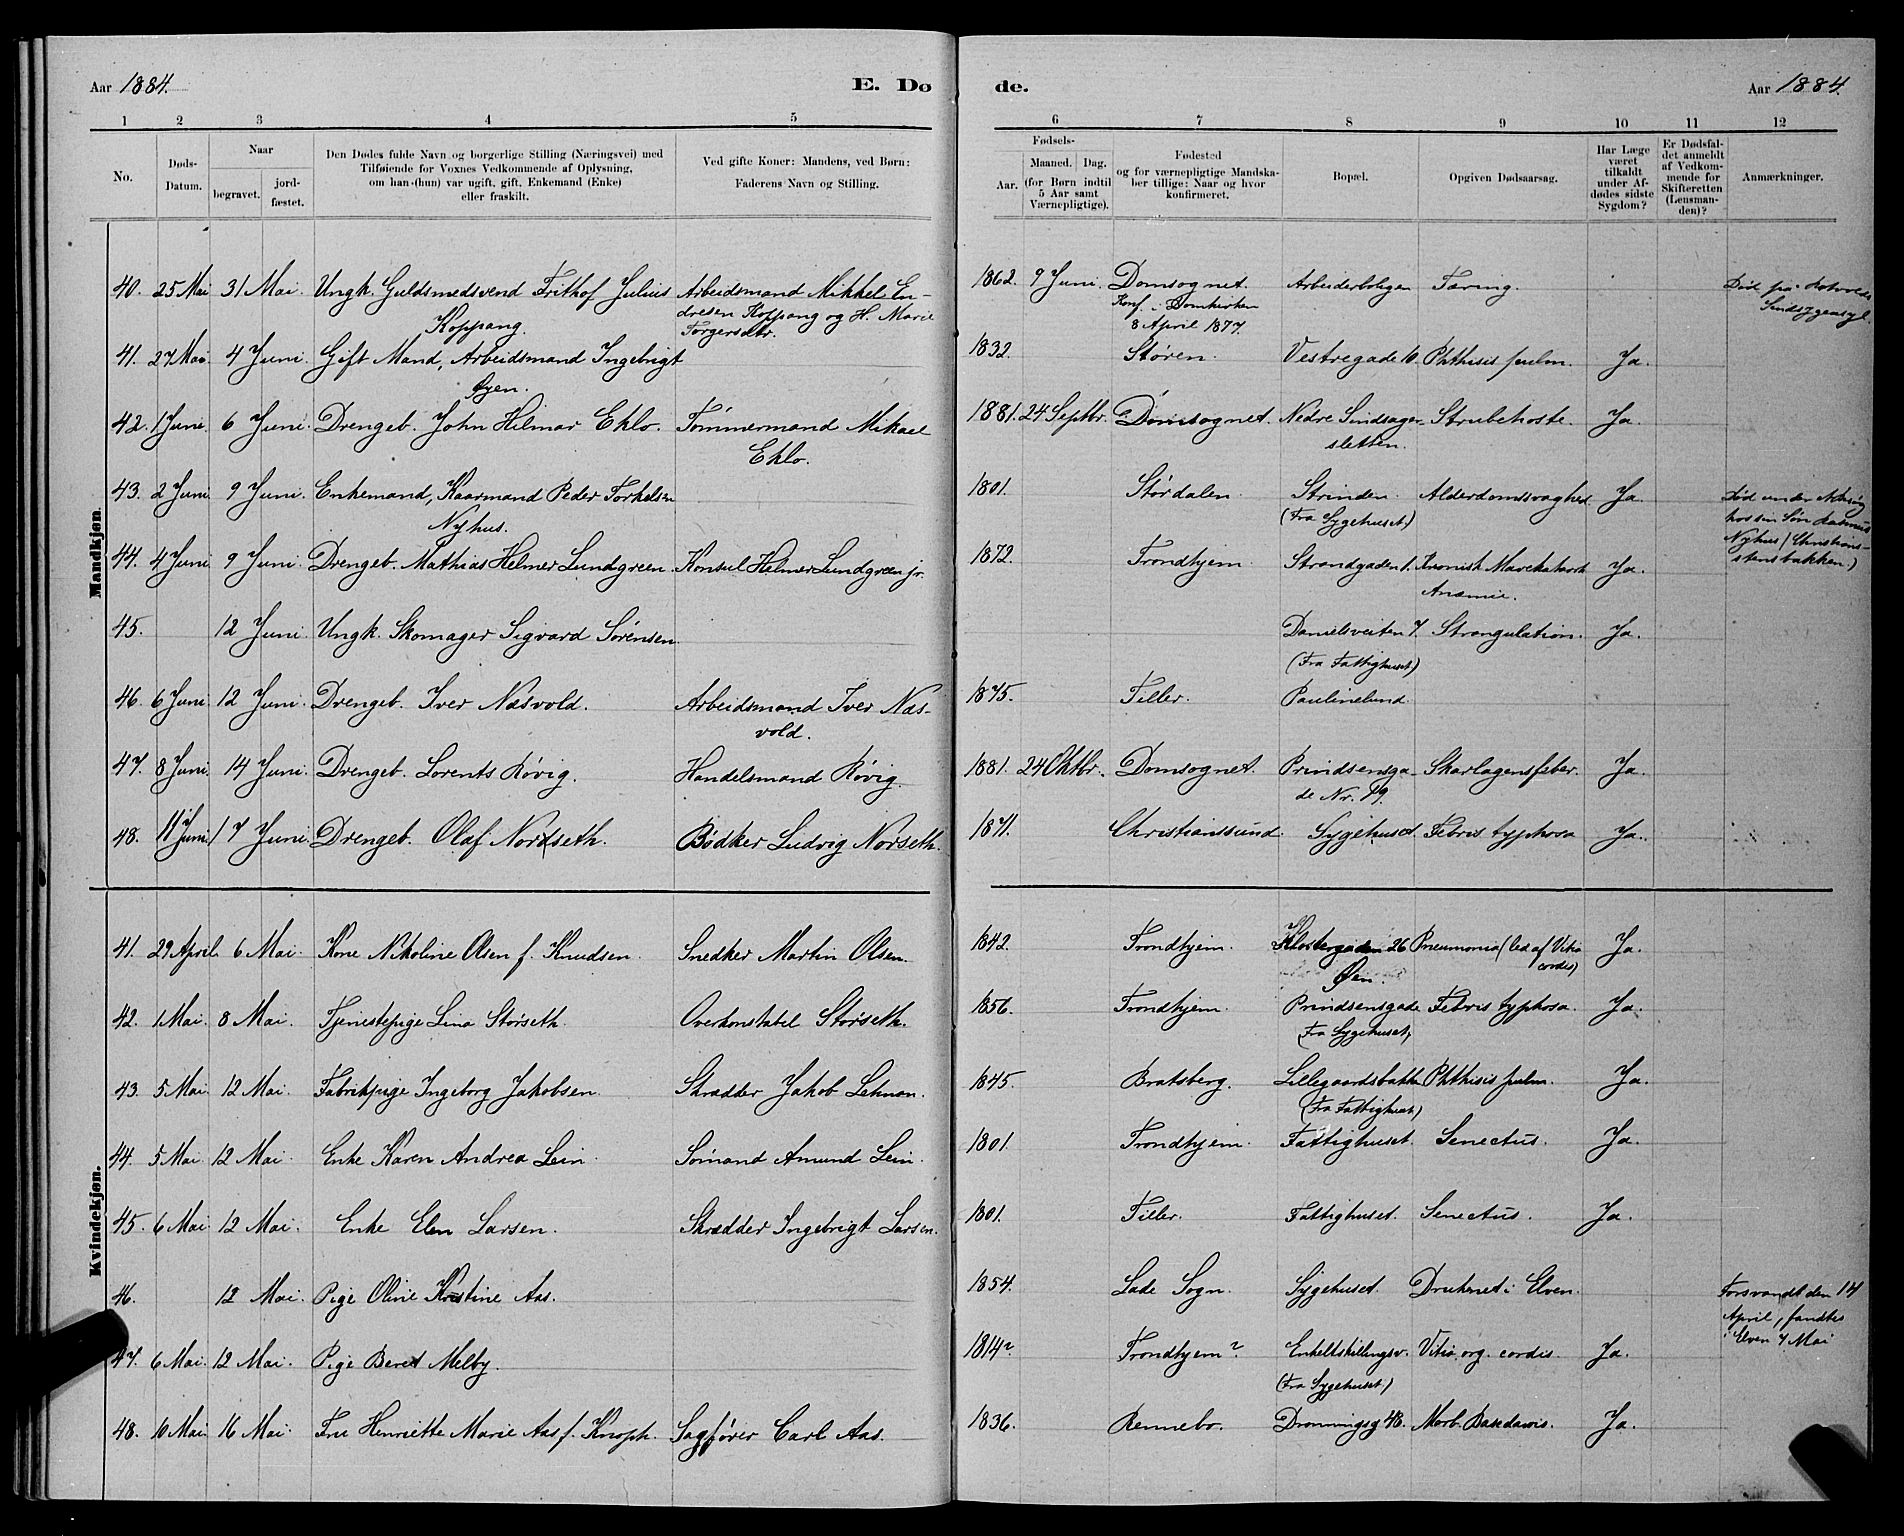 Aar 1884. E. Dø
de. Aar 1884.
1 2 3 4 5
6 7 8 9 10 11 12
No. Døds-Datum. Naar begravet. jord-fæstet.
Den Dødes fulde Navn og borgerlige Stilling (Næringsvei) med
Tilføiende for Voxnes Vedkommende af Oplysning,
om han-(hun) var ugift, gift, Enkemand (Enke)
eller fraskilt.
Ved gifte Koner: Mandens, ved Børn:
Faderens Navn og Stilling.
Fødsels-
Aar. Maaned. Dag.
(for Børn indtil
5 Aar samt
Værnepligtige).
Fødested
og for værnepligtige Mandska-
ber tillige: Naar og hvor
konfirmeret.
Bopæl.
Opgiven Dødsaarsag.
Har Læge
været
tilkaldt
under Af-
dødes sidste
Sygdom?
Er Dødsfal-
det anmeldt
af Vedkom-
mende for
Skifteretten
(Lensman-
den)?
Anmærkninger.
Mandkjøn.
40. 25 Mai 31 Mai. Ungk. Guldsmedsvend Frithof Julius Arbeidsmand Mikkel En- 1862. 9 Juni. Domsognet. Arbeiderboligen Tæring. Død på Rotvolds
Koppang. dresen Koppang og H. Marie Konf. i Domkirken Sindsygeasyl.
Torgersdtr. 8 April 1877.
41. 27 Mai 4 Juni. Gift Mand, Arbeidsmand Ingebrigt 1832. Støren. Vestregade 10. Phthisis pulm. Ja.
Øyen.
42. 1 Juni 6 Juni. Drengeb. John Hilmar Ehlo. Tømmermand Mikael 1881. 24 Septbr. Domsognet. Nedre Sindsager- Strubehoste. Ja.
Ehlo. sletten.
43. 2 Juni 9 Juni. Enkemand, Kaarmand Peder Torkelsen 1801. Størdalen. Strinden. Alderdomssvaghed Ja.
Nyhus. (Fra Sygehuset) Død under
hos sin Søn Rasmus
Nyhus (Christians-
stensbakken.)
44. 4 Juni 9 Juni. Drengeb. Mathias Helmer Lundgreen. Konsul Helmer Lundgreen jr. 1872. Trondhjem. Strandgaden 1. Kronisk Mavekatarrh Ja.
Anæmie.
45. 12 Juni Ungk. Skomager Sigvard Sørensen Danielsveiten 7. Strangulation. Ja.
(Fra Fattighuset)
46. 6 Juni 12 Juni. Drengeb. Iver Næsvold. Arbeidsmand Iver Næs- 1875. Tiller. Paulinelund.
vold.
47. 8 Juni. 14 Juni. Drengeb. Lorents Røvig. Handelsmand Røvig. 1881. 24 Oktbr. Domsognet. Prindsensga- Skarlagensfeber. Ja.
de Nr. 19.
48. 11 Juni. 17 Juni Drengeb. Olaf Nordseth. Bødker Ludvig Norseth. 1871. Christianssund. Sygehuset. Febris typhosa Ja.
Kvindekjøn.
41. 29 April 6 Mai. Kone Nikoline Olsen f. Knudsen. Snedker Martin Olsen. 1842. Trondhjem. Klostergaden 26 Pneumonia (led af Vitio Ja.
Øen. cordis)
42. 1 Mai. 8 Mai. Tjenestepige Lina Størseth. Overkonstabel Størseth. 1856. Trondhjem. Prindsensgade Febris typhosa. Ja.
(Fra Sygehuset)
43. 5 Mai. 12 Mai. Fabrikpige Ingeborg Jakobsen. Skrædder Jakob Lehman. 1845. Bratsberg. Lillegaardsbakke Phthisis pulm. Ja.
(Fra Fattighuset)
44. 5 Mai. 12 Mai. Enke Karen Andrea Lein. Sømand Amund Lein. 1801. Trondhjem. Fattighuset. Senectus. Ja.
45. 6 Mai 12 Mai. Enke Elen Larsen. Skrædder Ingebrigt Larsen. 1801. Tiller. Fattighuset. Senectus. Ja.
46. 12 Mai. Pige Oline Kristine Aas. 1854. Lade Sogn. Sygehuset. Druknet i Elven. Forsvandt den 14
April, fandtes
i Elven 7 Mai
47. 6 Mai. 12 Mai. Pige Beret Melby. 1814? Trondhjem? Enkeltskillingsv. Vitio org. cordis Ja.
(Fra Sygehuset)
48. 10 Mai. 16 Mai. Fru Henriette Marie Aas f. Knoph. Sagfører Carl Aas. 1836. Rennebo. Dronningsg. 48. Morb. Basedowis. Ja.